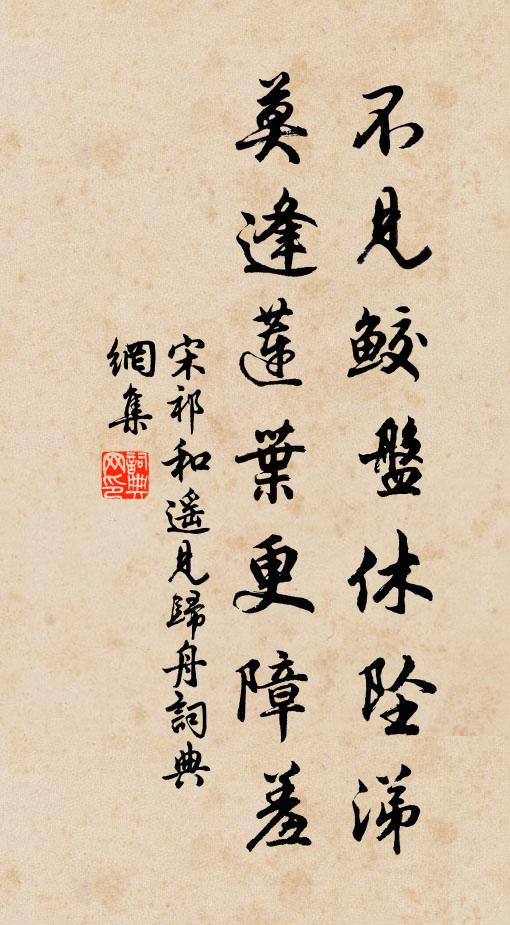 不見鲛盤休坠涕
莫逢蓮葉更障羞
宋祁和遥見歸舟詞典
網集
詞典
网印